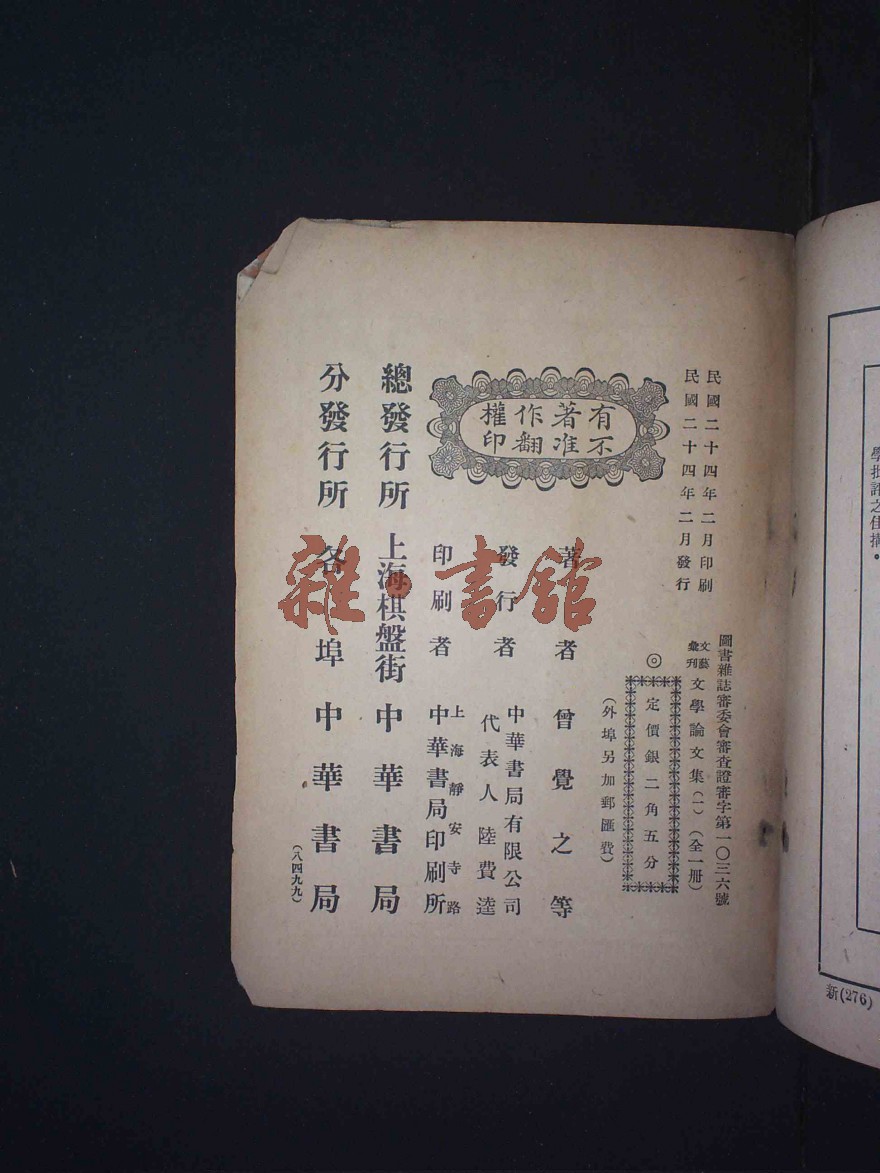 民國二十四年二月印刷
民國二十四年二月發行
圖書雜誌審委會審查證審字第一〇三六號
文藝彙刊 文學論文集(一)(全一册)
◎定價銀二角五分
(外埠另加郵匯費)
有著作權
不准翻印
著者 曾覺之等
發行者 中華書局有限公司
代表人 陸費逵
印刷者 上海靜安寺路
中華書局印刷所
總發行所 上海棋盤街 中華書局
分發行所 各埠中華書局
(八四九九)
雜·書館
學批評之佳搆。
新(276)